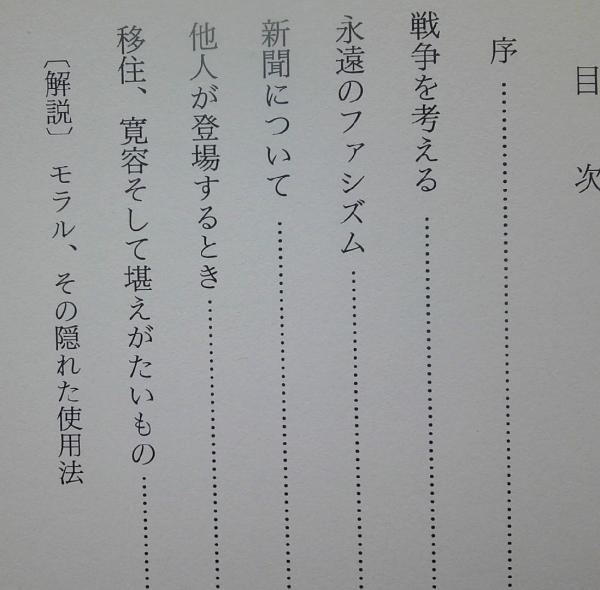 目次
序
戦争を考える
永遠のファシズム
新聞について
他人が登場するとき
移住、寛容そして堪えがたいもの
〔解説〕 モラル、その隠れた使用法